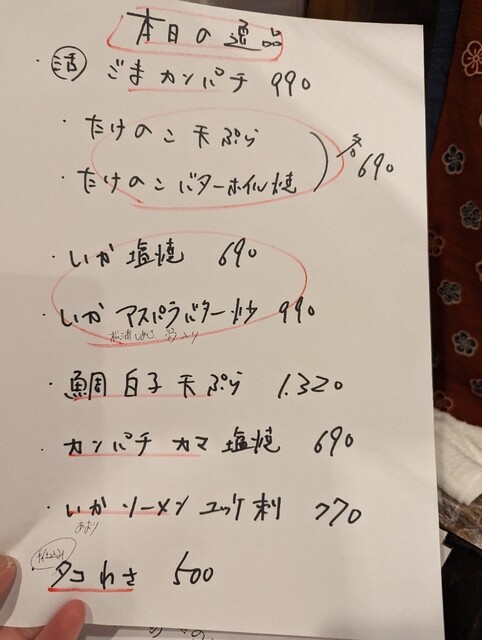 本日の逸品
・㊋ ごまカンパチ 990
・たけのこ天ぷら
・たけのこバターホイル焼 各690
・いか塩焼 690
・いかアスパラバター炒 990
・鯛白子天ぷら 1.320
・カンパチカマ塩焼 690
・いかソーメンユッケ刺 770
あおり
タコわさ 500